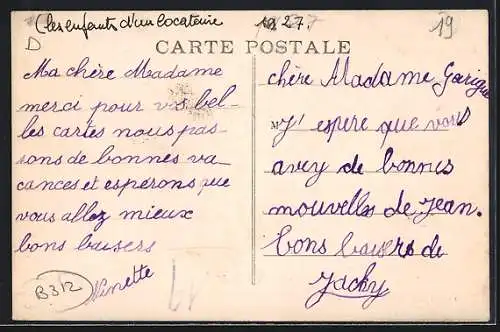 (les enfants d'un locataire
1927.
19
D
CARTE POSTALE
Ma chère Madame
merci pour vos bel-
les cartes nous pas-
sons de bonnes va-
cances et esperons que
vous allez mieux
bons baisers
Ninette
B312
19
chère Madame Garigue
M
J'espere que vous
avez de bonnes
nouvelles de Jean.
bons baisers de
Jacky